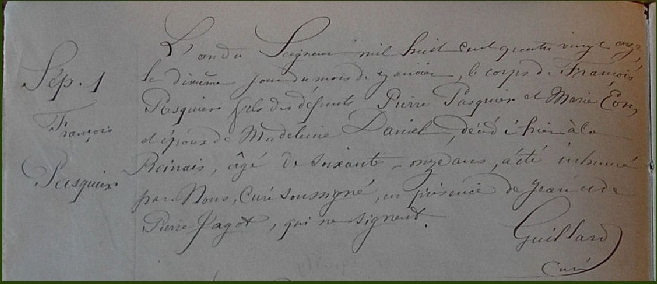 Sép. 1
François
Pasquier
L'an du Seigneur mil huit cent quatre vingt onze,
le dixième jour du mois de janvier, le corps de François
Pasquier fils des défunts Pierre Pasquier et Marie Eon,
et époux de Madeleine Daniel, décédé hier à la
âgé de soixante-onze ans, a été inhumé
par Nous, Curé soussigné, en présence de Jean et de
Pierre Pagot, qui ne signent.
Guillard
Curé